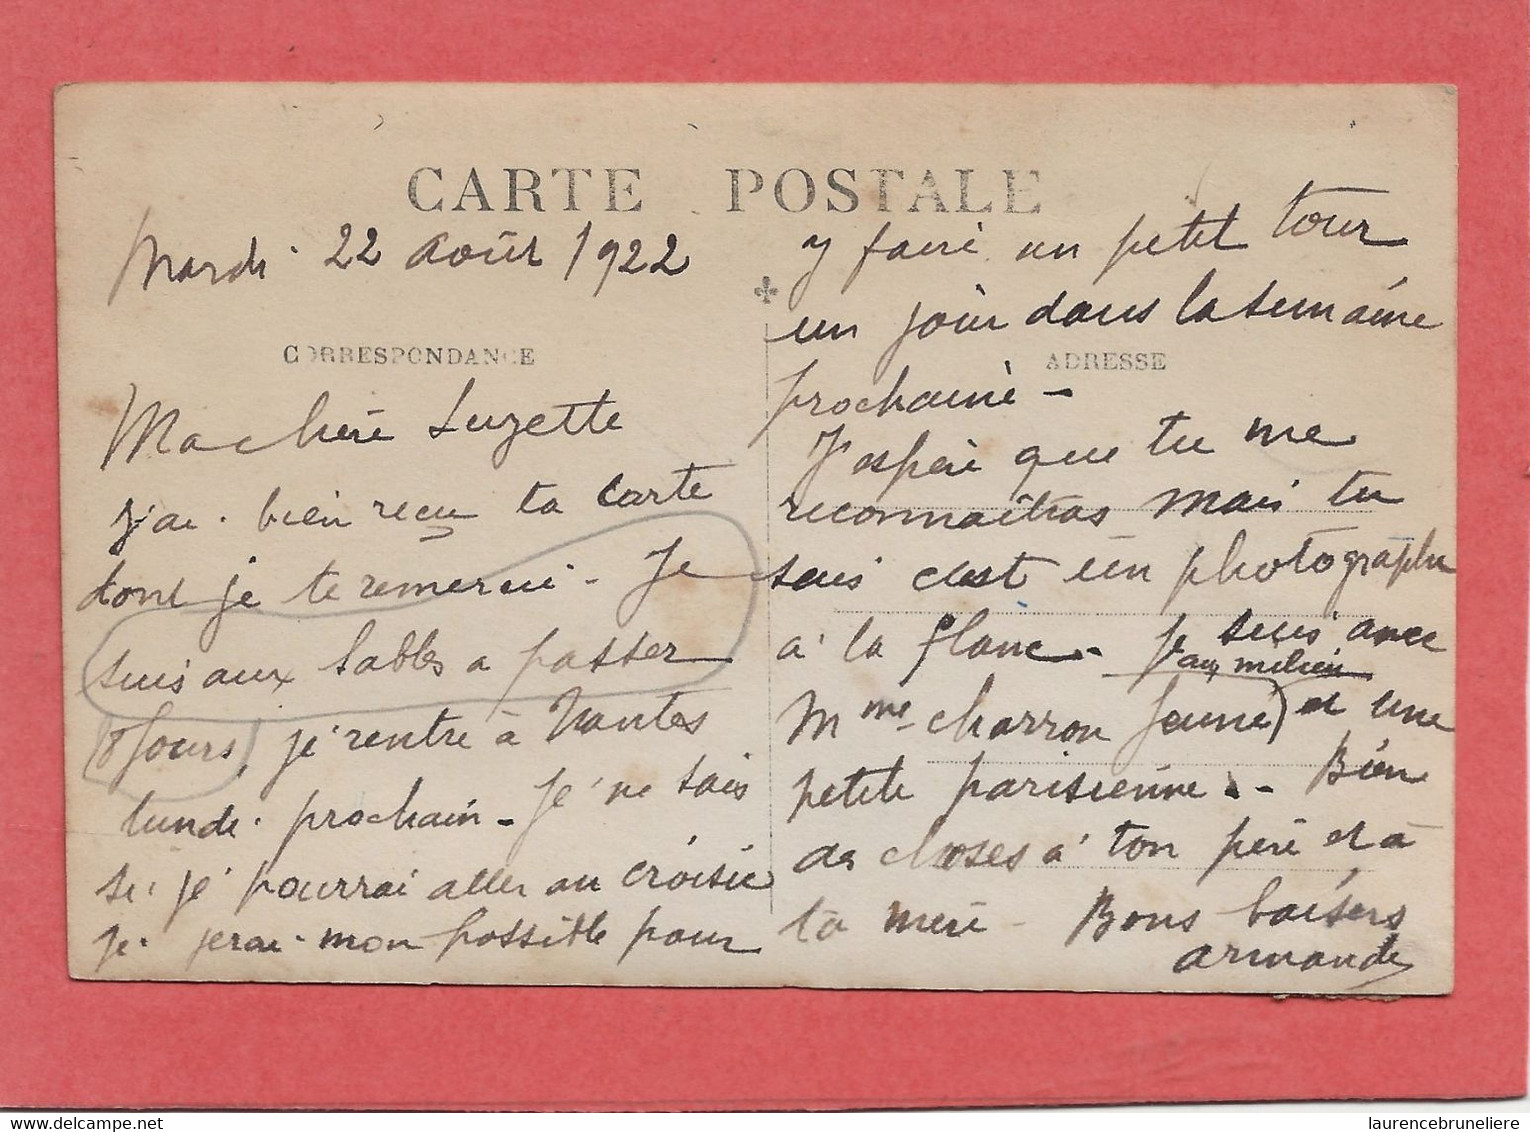 CARTE POSTALE
Mardi. 22 août 1922
CORRESPONDANCE
Ma chère Suzette
j'ai bien reçu ta carte
dont je te remercie - Je
suis aux Sables a passer
8 Jours, je rentre à Nantes
lundi prochain - Je ne sais
si je pourrai aller au croisic
je ferai mon possible pour
y faire un petit tour
un jour dans la semaine
ADRESSE
prochaine -
J'espère que tu me
reconnaîtras mais tu
sais c'est un photographe
a la flanc - je suis avec
au milieu
Mme charron Jeune) et une
petite parisienne. - Bien
des choses à ton père et à
ta mère - Bons baisers
armande
laurencebruneliere
delcampe.net